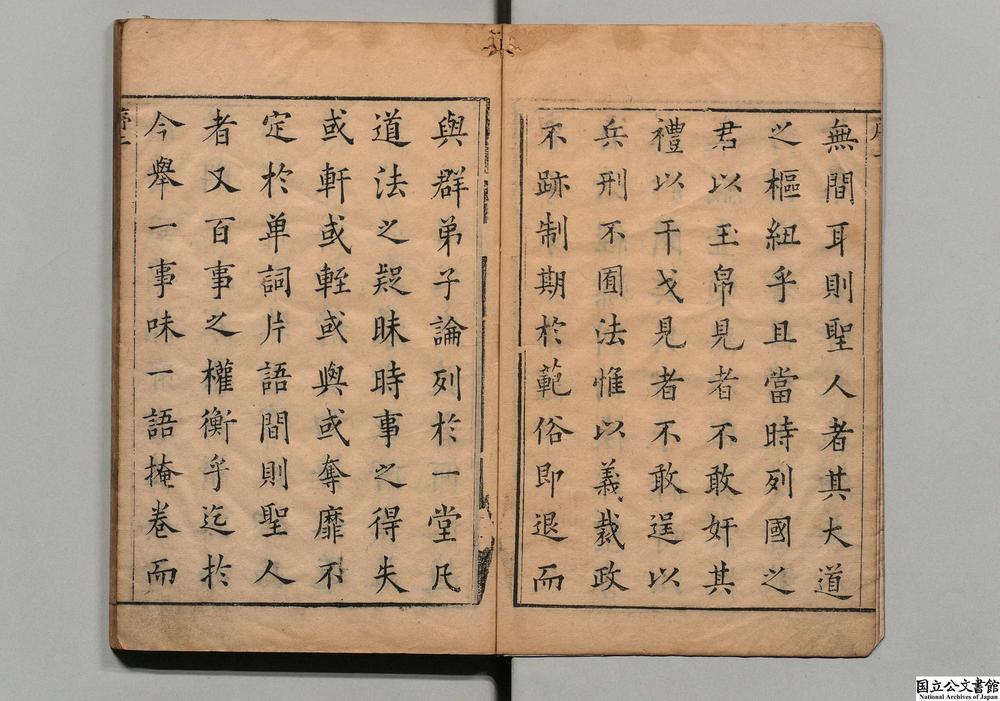 無間耳則聖人者其大道
之樞紐乎且當時列國之
君以玉帛見者不敢奸其
禮以干戈見者不敢逞以
兵刑不囿法惟以義裁政
不跡制期於範俗即退而
與群弟子論列於一堂凡
道法之疑昧時事之得失
或軒或輊或與或奪靡不
定於单詞片語間則聖人
者又百事之權衡乎迄於
今舉一事味一語掩卷而
国立公文書館
National Archives of Japan